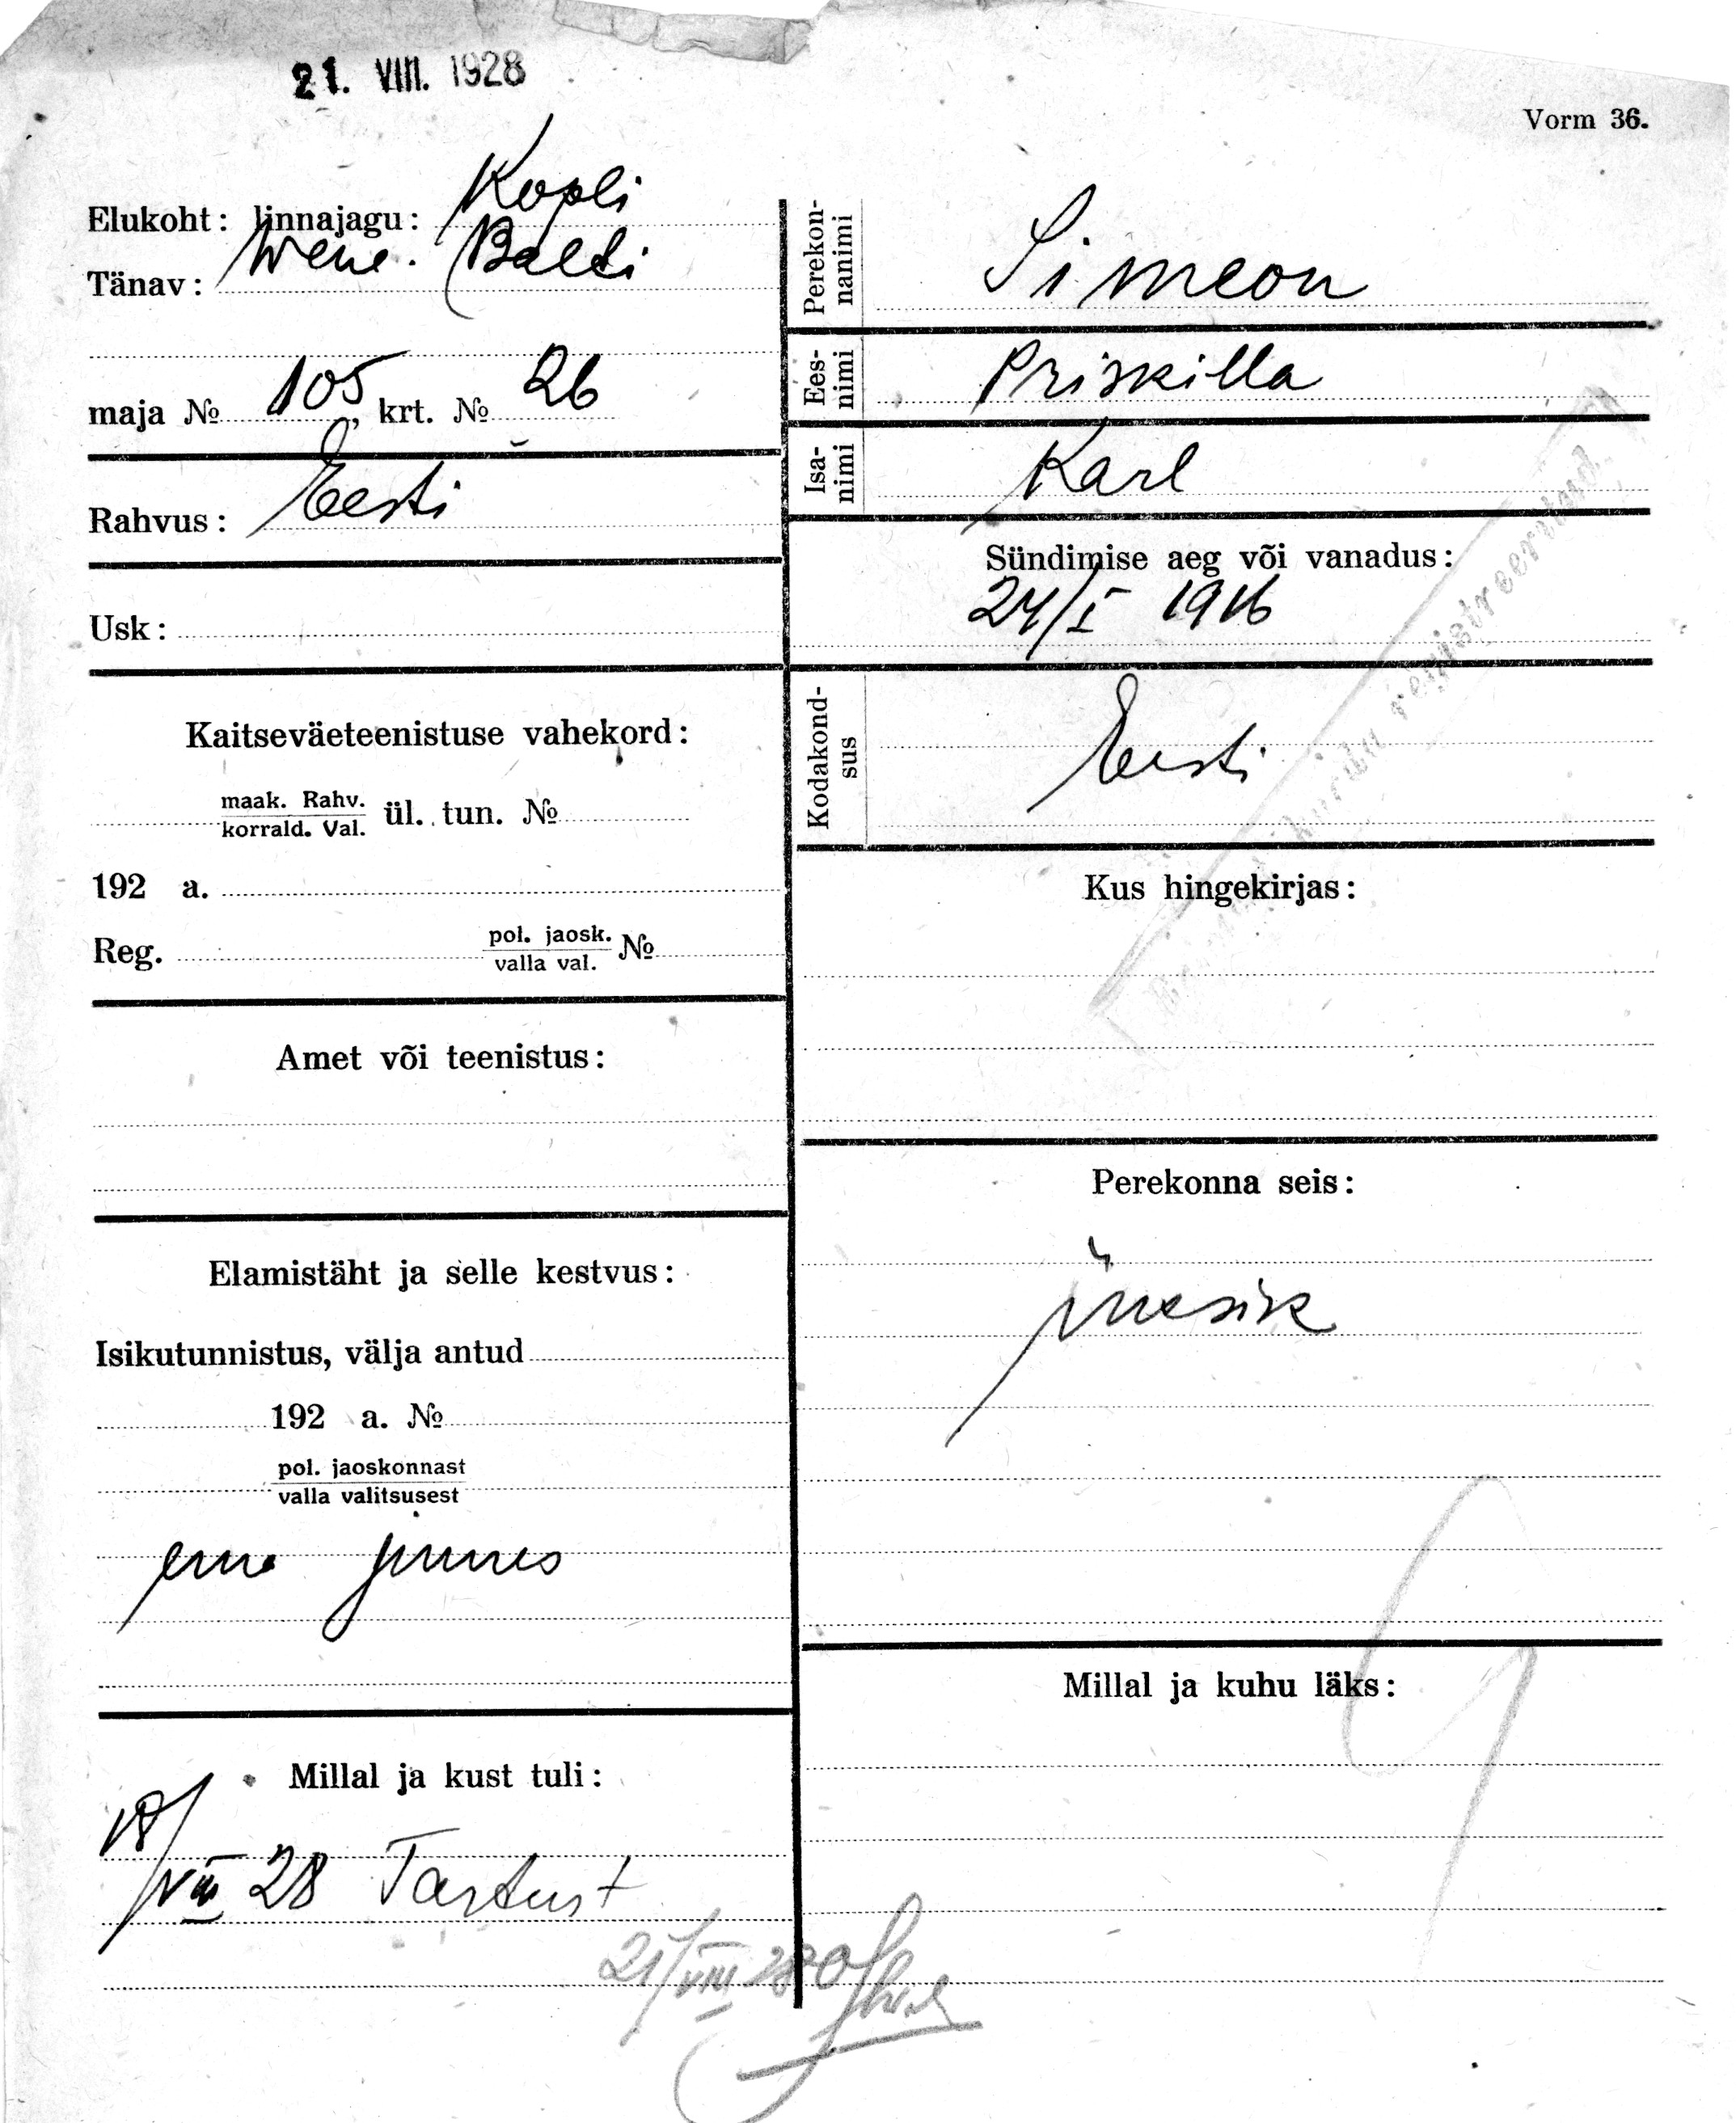 21. VIII. 1928
Vorm 36.
Elukoht: linnajagu: Kopli
Tänav: Wene. Balti
maja № 105, krt. № 26
Rahvus: Eesti
Usk:
Kaitseväeteenistuse vahekord:
maak. Rahv.
korrald. Val. ül. tun. №
192 a.
Reg. pol. jaosk.
valla val. №
Amet või teenistus:
Elamistäht ja selle kestvus:
Isikutunnistus, välja antud
192 a. №
pol. jaoskonnast
valla valitsusest
ema juures
Millal ja kust tuli:
18/VIII 28 Tartust
Perekon-
nanimi
Simeon
Ees-
nimi
Priskilla
Isa-
nimi
Karl
Sündimise aeg või vanadus:
24/I 1916
Kodakond-
sus
Eesti
registreeritud
Kus hingekirjas:
Perekonna seis:
üksik
Millal ja kuhu läks:
21/VIII 28